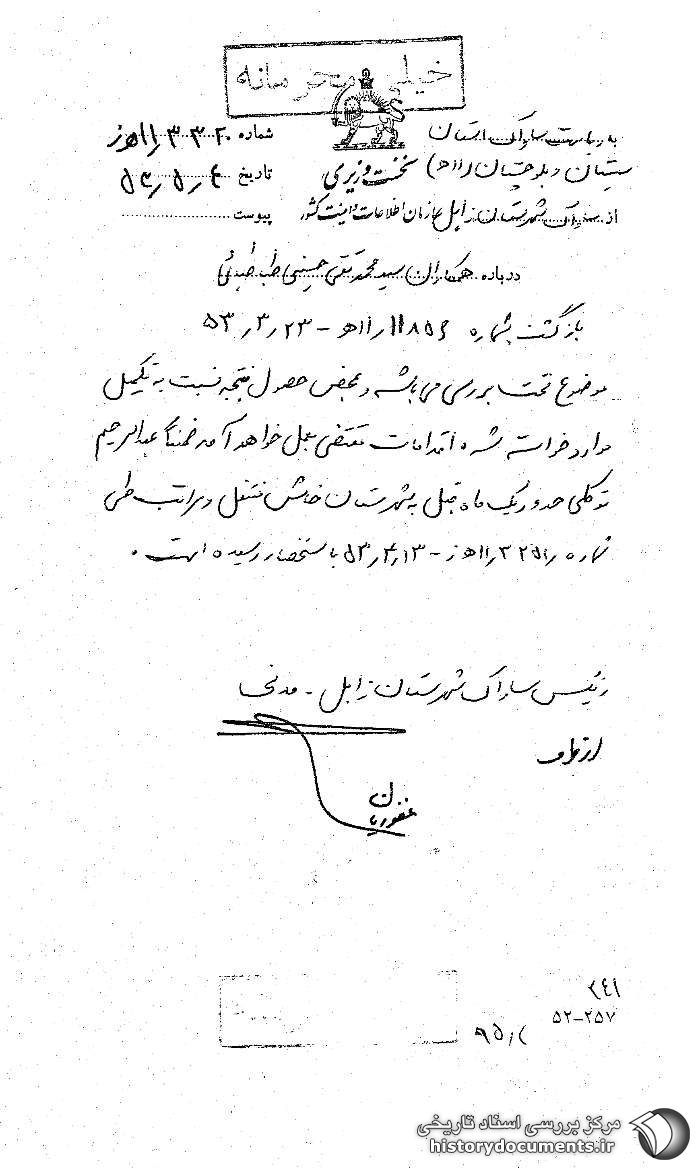 خیلی محرمانه
به ریاست ساواک استان
شماره ۳۳۲۰/۱۱هـ ز
سیستان و بلوچستان (۱۱هـ)
نخست وزیری
تاریخ ۵۳/۵/۴
از ساواک شهرستان زابل
سازمان اطلاعات و امنیت کشور
پیوست
درباره همکاران سید محمد تقی حسینی طباطبائی
بازگشت بشماره ۱۱۸۵۶/۱۱هـ - ۵۳/۳/۲۳
موضوع تحت بررسی می باشد و بمحض حصول نتیجه نسبت به تکمیل
موارد خواسته شده اقدامات مقتضی بعمل خواهد آمد ضمنا عبدالرحیم
توکلی حدود یک ماه قبل به شهرستان خاش منتقل و مراتب طی
شماره ۳۲۵۱/۱۱هـ ز - ۵۳/۴/۱۳ باستحضار رسیده است .
رئیس ساواک شهرستان زابل -
از طرف
غفوریان
۲۴۱
۵۲-۲۵۷
مرکز بررسی اسناد تاریخی
historydocuments.ir